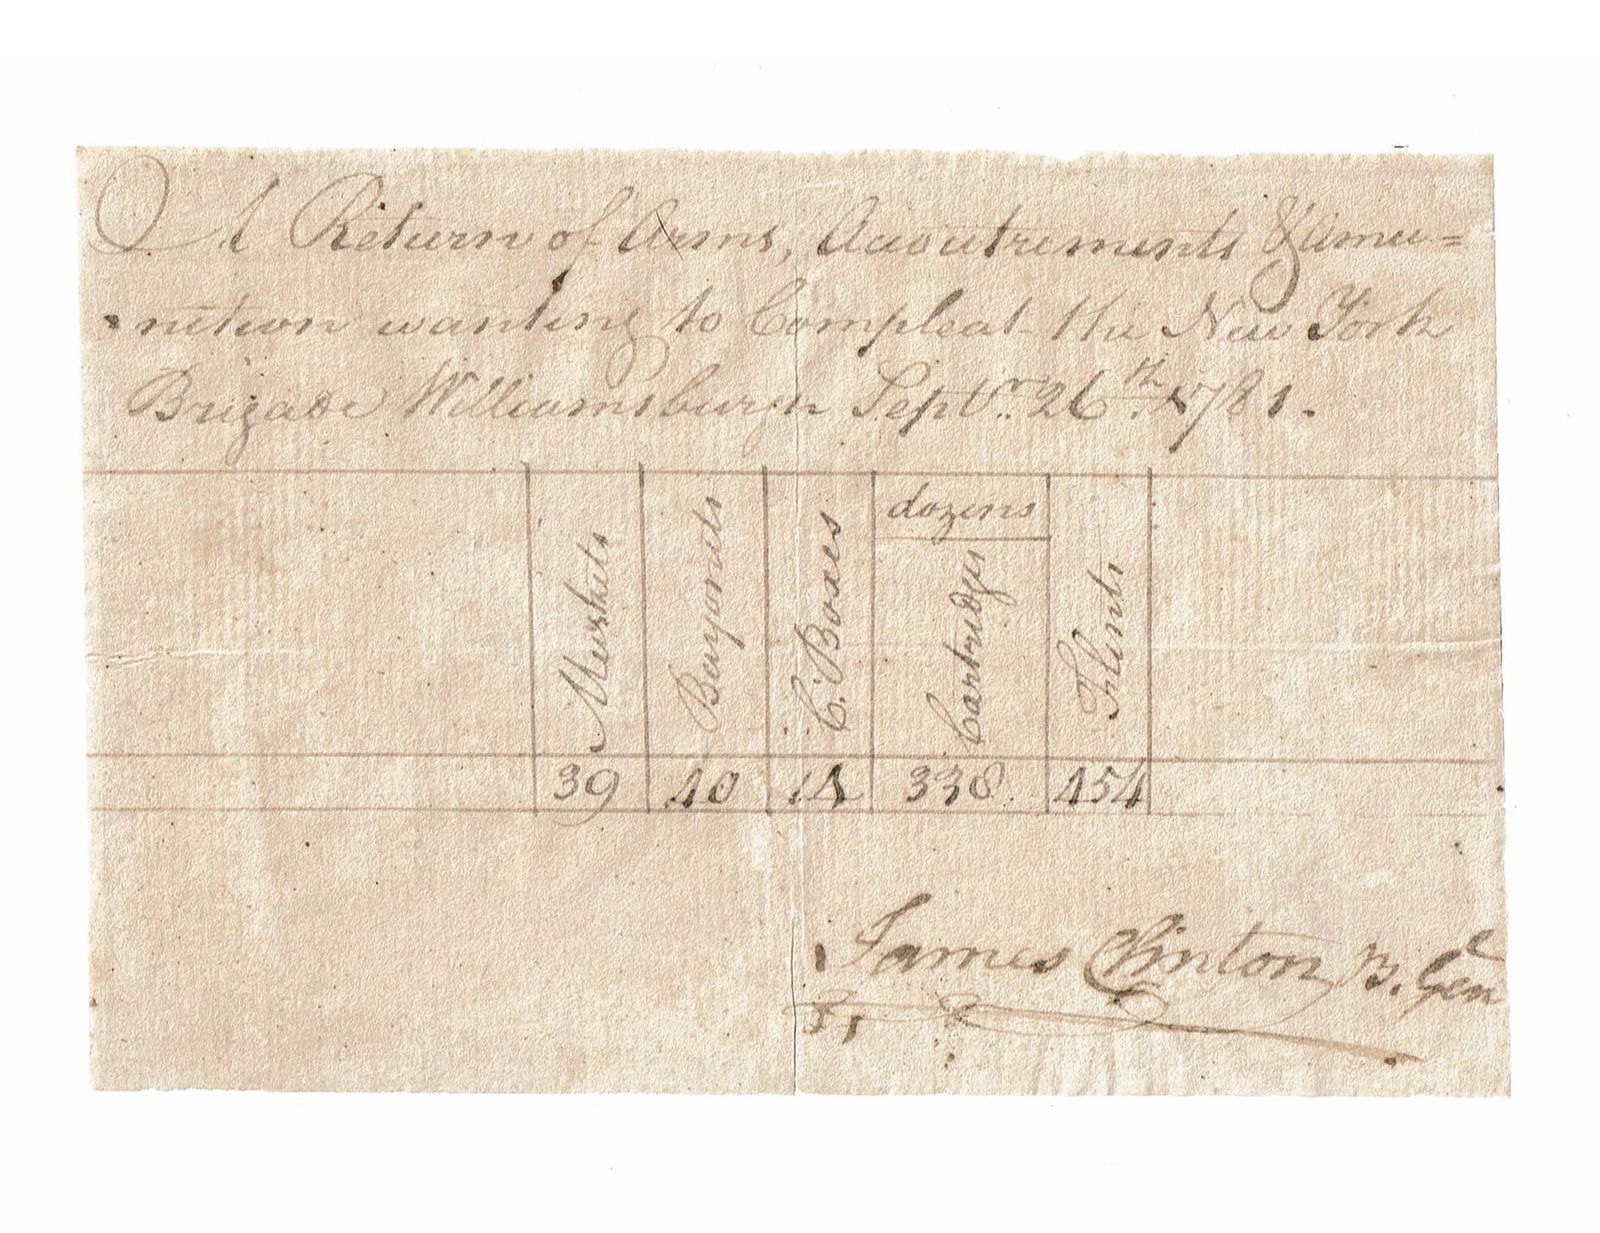 A Return of Arms, Accoutrements & Amu=
nition wanting to Compleat the New York
Brigade Williamsburgh Septr. 26th. 1781.
Muskets
Bayonets
C. Boxes
dozens
Cartridges
Flints
39 40 14 338 454
James Clinton B. Gen